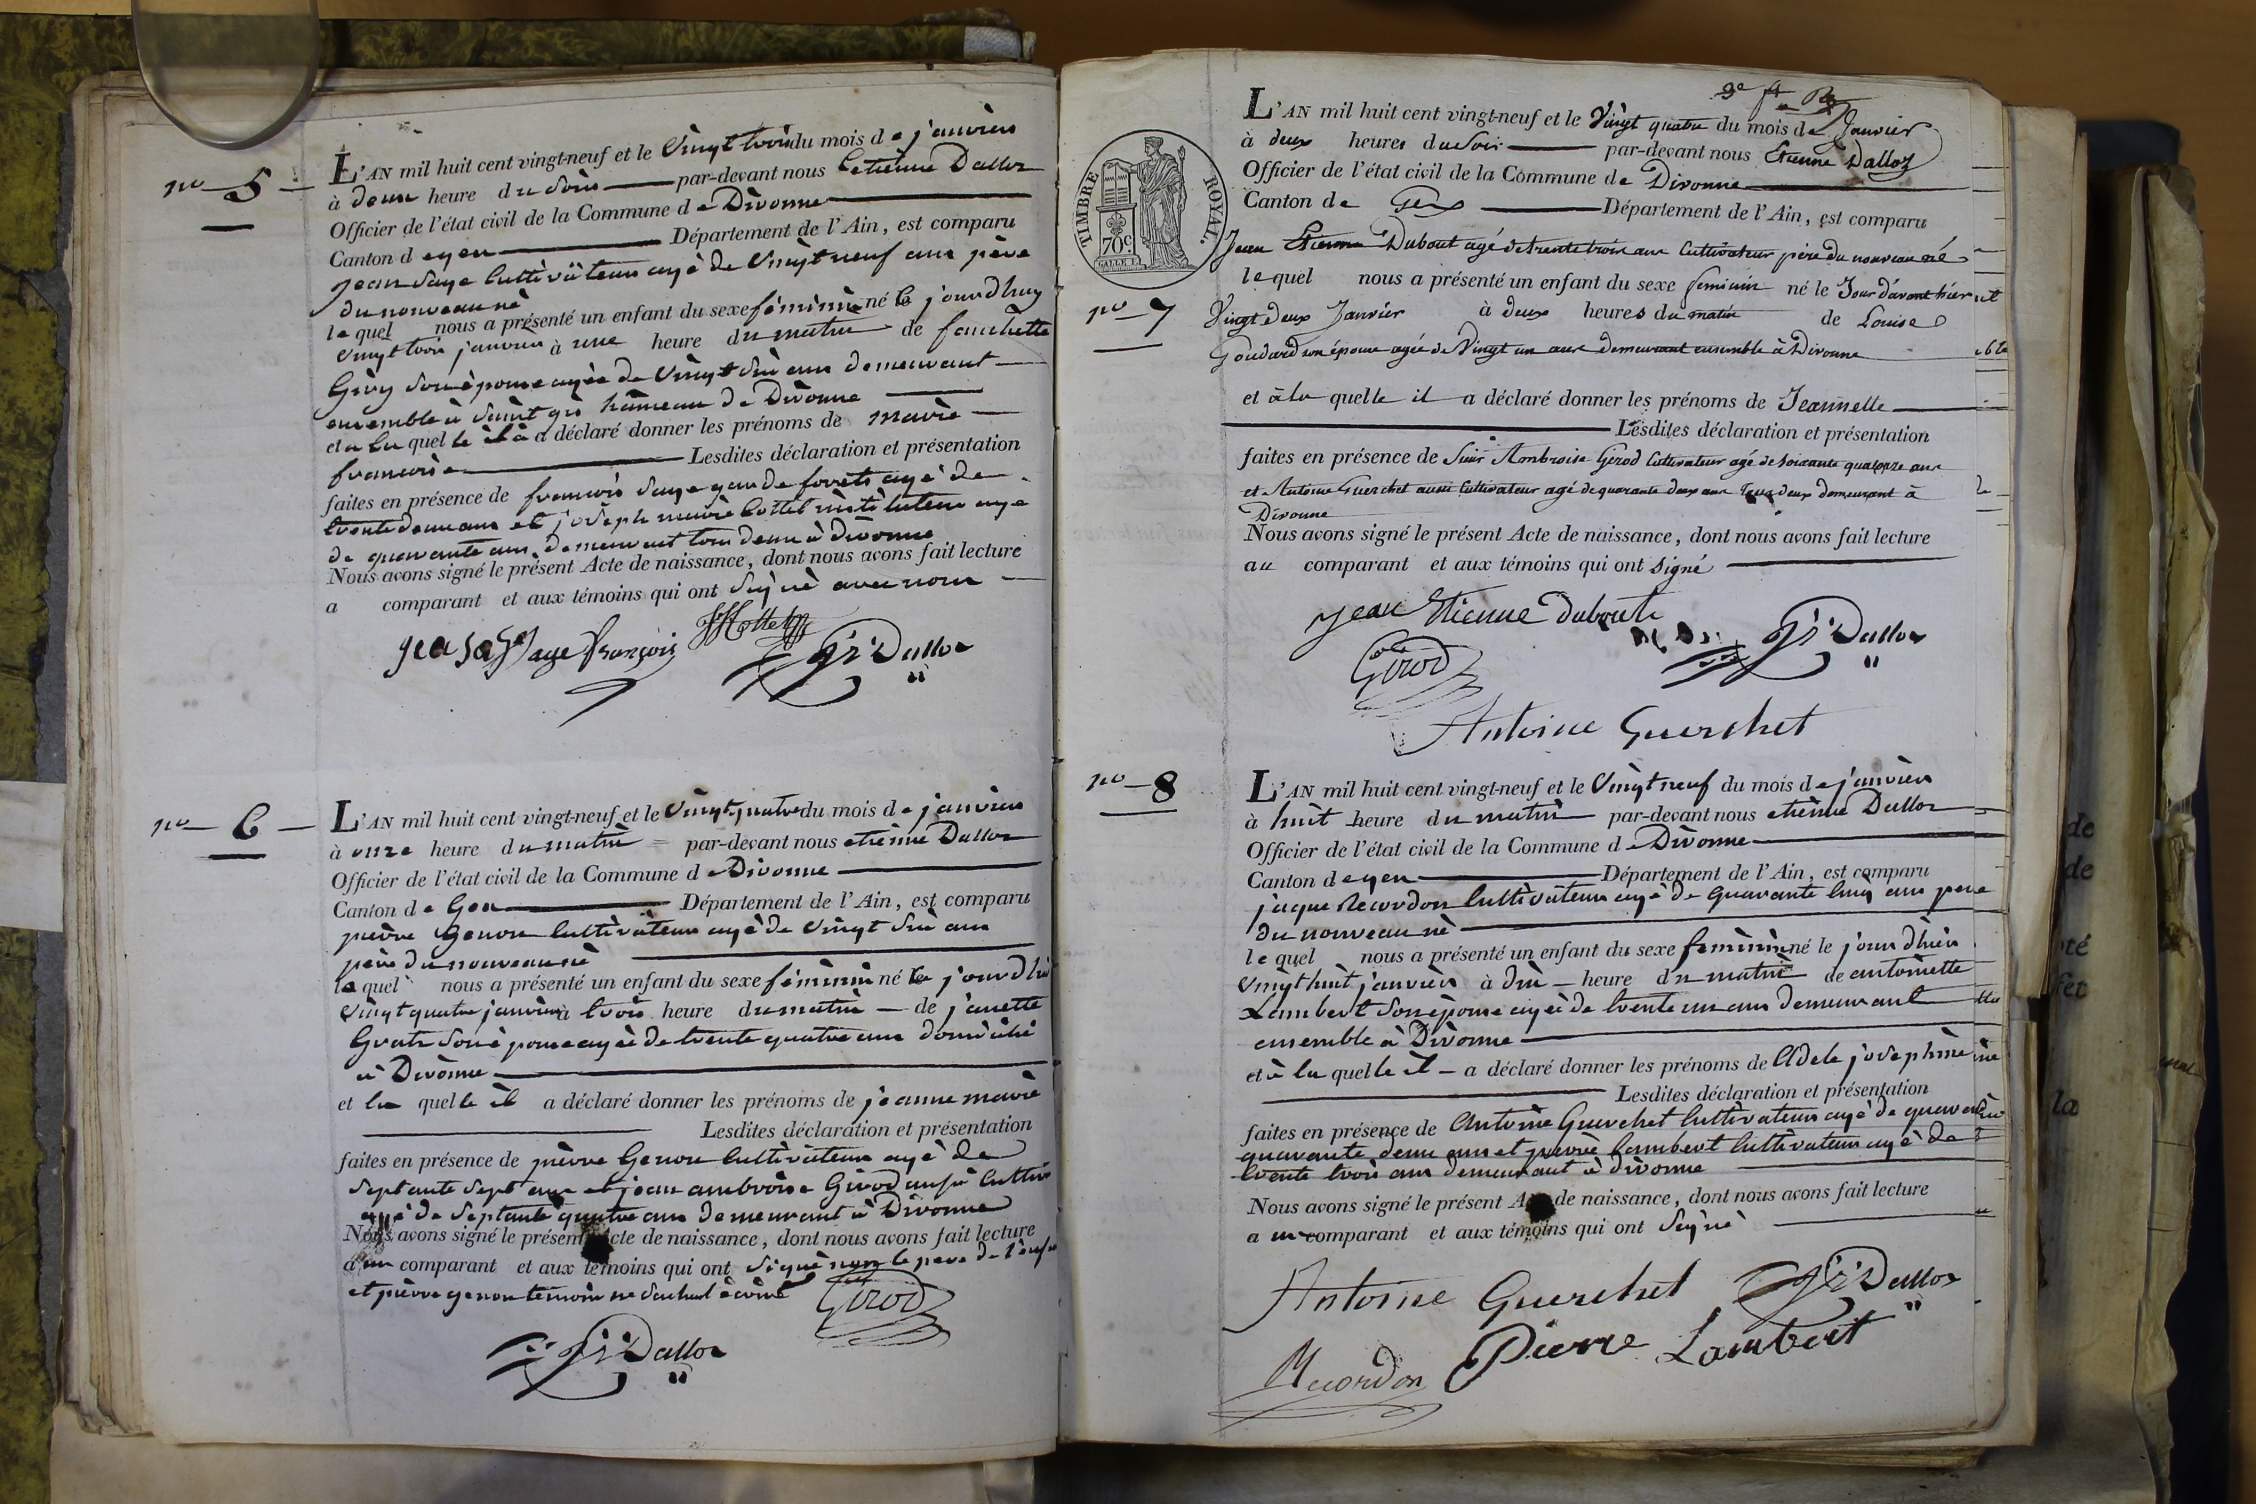 no 5
L'AN mil huit cent vingt-neuf et le vingt trois du mois de janvier
à deux heure du soir par-devant nous Etiènne Dalloz
Officier de l'état civil de la Commune de Divonne
Canton de gex Département de l'Ain, est comparu
jean Saye Cultivateur agé de vingt neuf ans père
du nouveau né
lequel nous a présenté un enfant du sexe féminin né le jourdhuy
vingt trois janvier à une heure du matin de franchette
Giry son épouse agée de vingt six ans demeurant
ensemble à Saint gix hameau de Divonne
et a la quelle il a déclaré donner les prénoms de marie
francoise Lesdites déclaration et présentation
faites en présence de francois Saye garde forets agé de
trente deux ans et joseph marie Cottet instituteur agé
de quarante ans demeurant tous deux à Divonne
Nous avons signé le présent Acte de naissance, dont nous avons fait lecture
a comparant et aux témoins qui ont signé avec nous
jea saye Saye françois Cottet Dalloz
no 6
L'AN mil huit cent vingt-neuf et le vingt quatre du mois de janvier
à onze heure du matin par-devant nous etiènne Dalloz
Officier de l'état civil de la Commune de Divonne
Canton de Gex Département de l'Ain, est comparu
pièrre genou Cultivateur agé de vingt six ans
père du nouveau né
lequel nous a présenté un enfant du sexe féminin né le jourdhui
vingt quatre janvier à trois heure du matin de janette
Gratz son épouse agée de trente quatre ans domicilié
à Divonne
et la quelle il a déclaré donner les prénoms de jeanne marie
Lesdites déclaration et présentation
faites en présence de pièrre Genou Cultivateur agé de
septante sept ans et jean ambroise Girod aussi Cultiv
agé de septante quatre ans demeurant à Divonne
Nous avons signé le présent Acte de naissance, dont nous avons fait lecture
a un comparant et aux témoins qui ont signé non le pere de l'enfan
et pièrre genou temoin ne sachant écrire Girod
Dalloz
TIMBRE ROYAL.
70c.
L'AN mil huit cent vingt-neuf et le Vingt quatre du mois de Janvier
à deux heures du Soir par-devant nous Etienne Dalloz
Officier de l'état civil de la Commune de Divonne
Canton de Gex Département de l'Ain, est comparu
Jean Etienne Dubout agé de trente trois ans Cultivateur père du nouveau né
lequel nous a présenté un enfant du sexe feminin né le Jour d'avant hier
no 7
Vingt deux Janvier à deux heures du matin de Louise
Goudard son épouse agée de Vingt un ans demeurant ensemble à Divonne
et à la quelle il a déclaré donner les prénoms de Jeannette
Lesdites déclaration et présentation
faites en présence de Sieur Ambroise Girod Cultivateur agé de soixante quatorze ans
et Antoine Guerchet aussi Cultivateur agé de quarante deux ans Tous deux demeurant à
Divonne
Nous avons signé le présent Acte de naissance, dont nous avons fait lecture
au comparant et aux témoins qui ont signé
jean Etienne Dubout
Girod Dalloz
Antoine Guerchet
no 8
L'AN mil huit cent vingt-neuf et le vingt neuf du mois de janvier
à huit heure du matin par-devant nous etiènne Dalloz
Officier de l'état civil de la Commune de Divonne
Canton de gex Département de l'Ain, est comparu
jaque Recordon Cultivateur agé de quarante cinq ans pere
du nouveau né
lequel nous a présenté un enfant du sexe féminin né le jour dhier
vingt huit janvier à dix heure du matin de antoinette
Lambert son épouse agée de trente un ans demeurant
ensemble à Divonne
et à la quelle il a déclaré donner les prénoms de Adele josephine
Lesdites déclaration et présentation
faites en présence de Antoine Guerchet Cultivateur agé de
quarante deux ans et pièrre Lambert Cultivateur agé de
trente trois ans demeurant à divonne
Nous avons signé le présent Acte de naissance, dont nous avons fait lecture
a un comparant et aux témoins qui ont signé
Antoine Guerchet Dalloz
Recordon Pierre Lambert